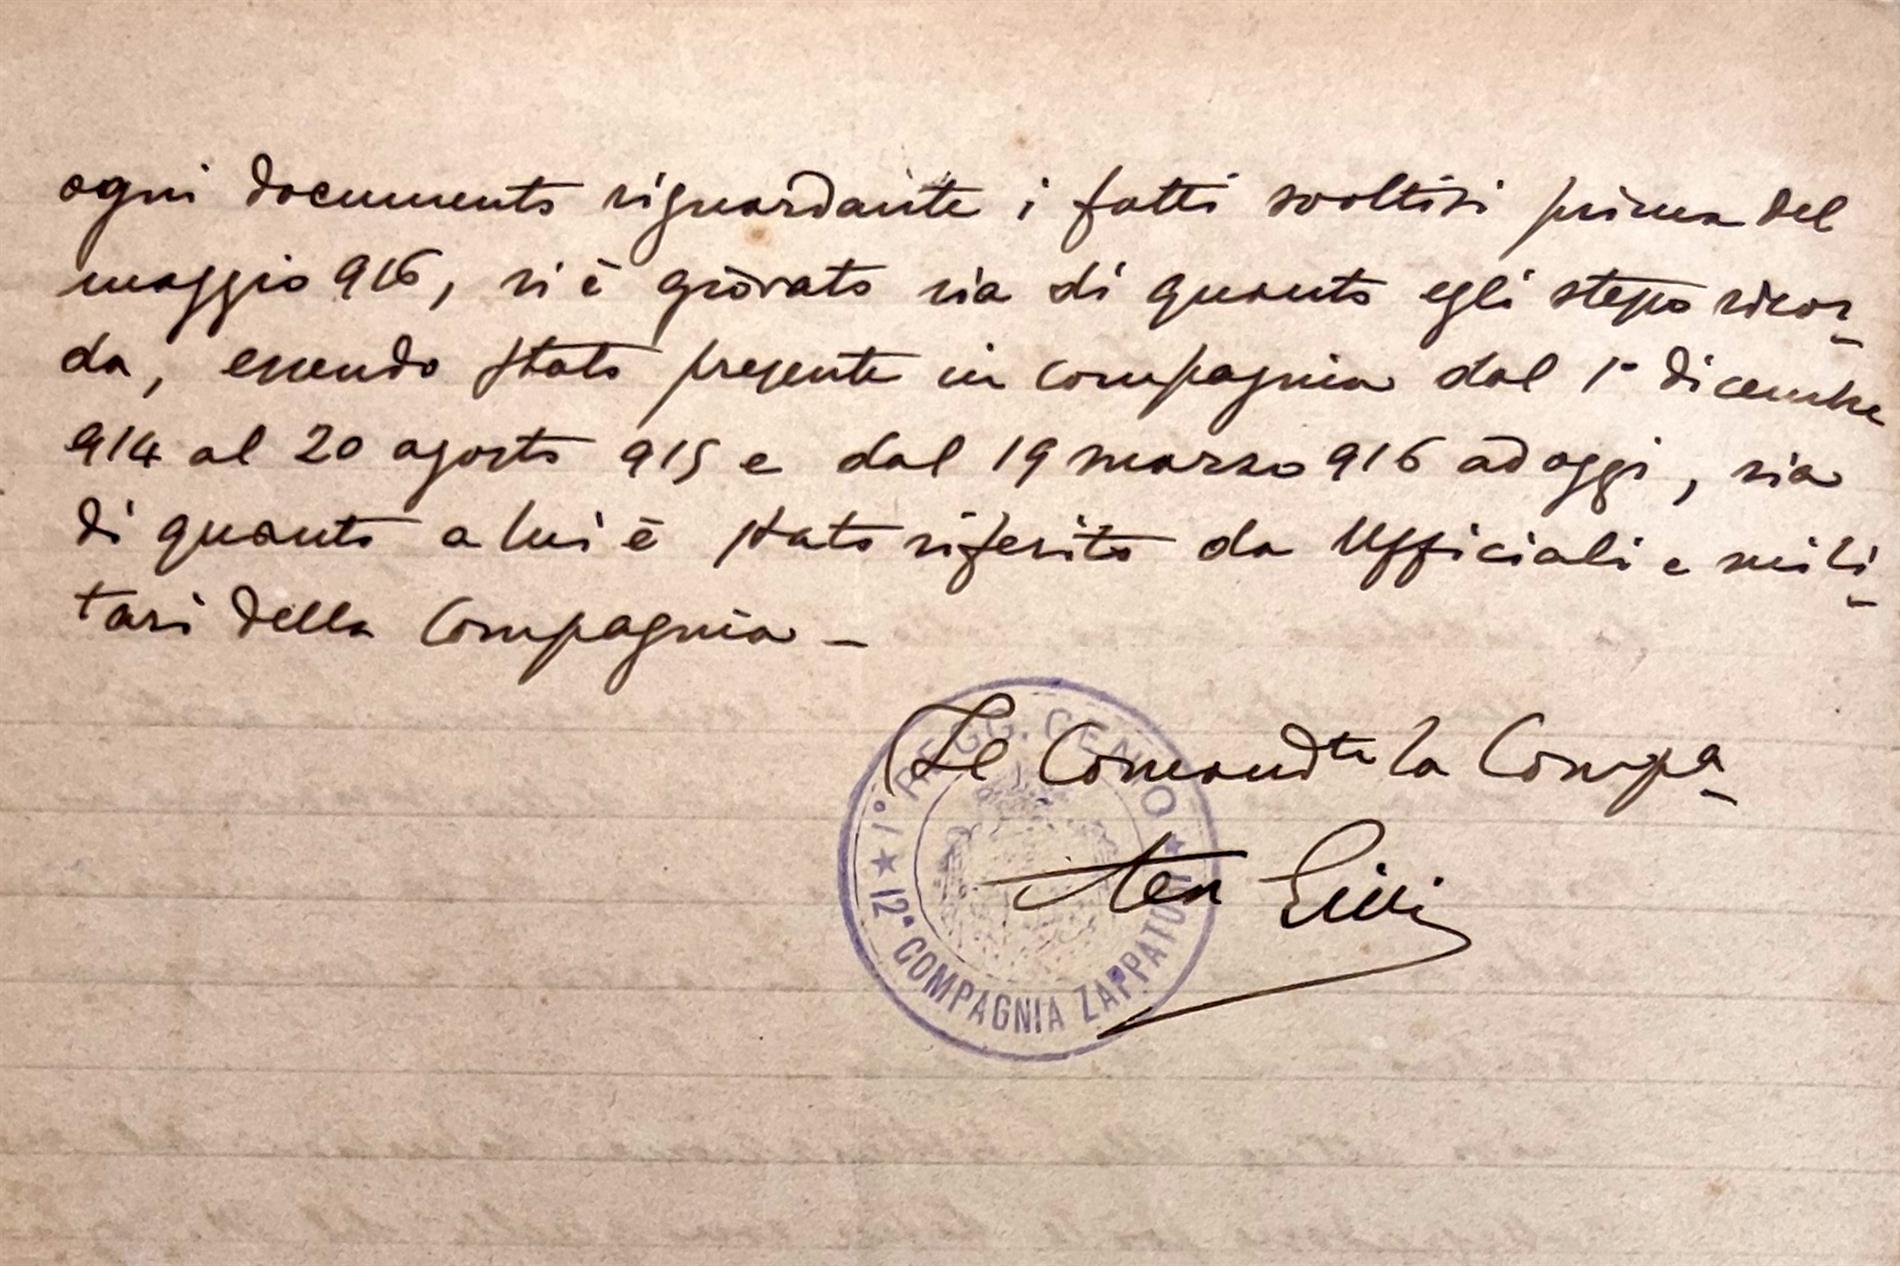 ogni documento riguardante i fatti svoltisi prima del
maggio 916, si è giovato sia di quanto egli stesso ricor-
da, essendo stato presente in compagnia dal 1° dicembre
914 al 20 agosto 915 e dal 19 marzo 916 ad oggi, sia
di quanto a lui è stato riferito da Ufficiali e mili-
tari della Compagnia -
Il Comandte la Compa-
Ten
1° REGG. GENIO
12ª COMPAGNIA ZAPPATORI